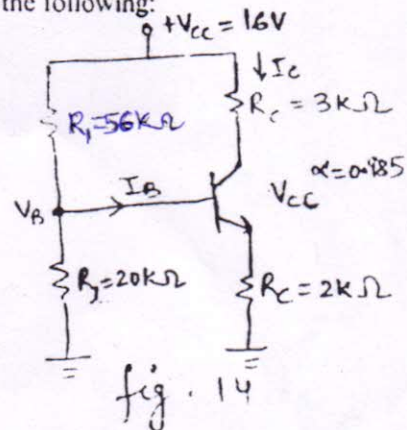 the following:
+Vcc = 16V
↓Ic
R₁=56KΩ
Rc = 3KΩ
α=0.985
VB
IB
Vcc
R₂=20KΩ
Rc=2KΩ
fig. 14